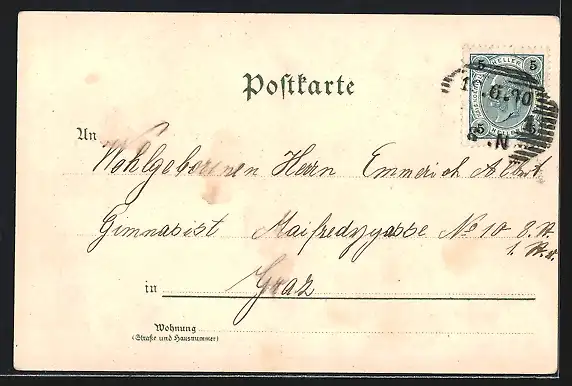 5 HELLER 5
Postkarte
6.00
N
An Wohlgeborenen Herrn Emmerich Albert
Gimnasist Maifredygasse No 10 2. St.
in Graz
Wohnung
(Straße und Hausnummer)